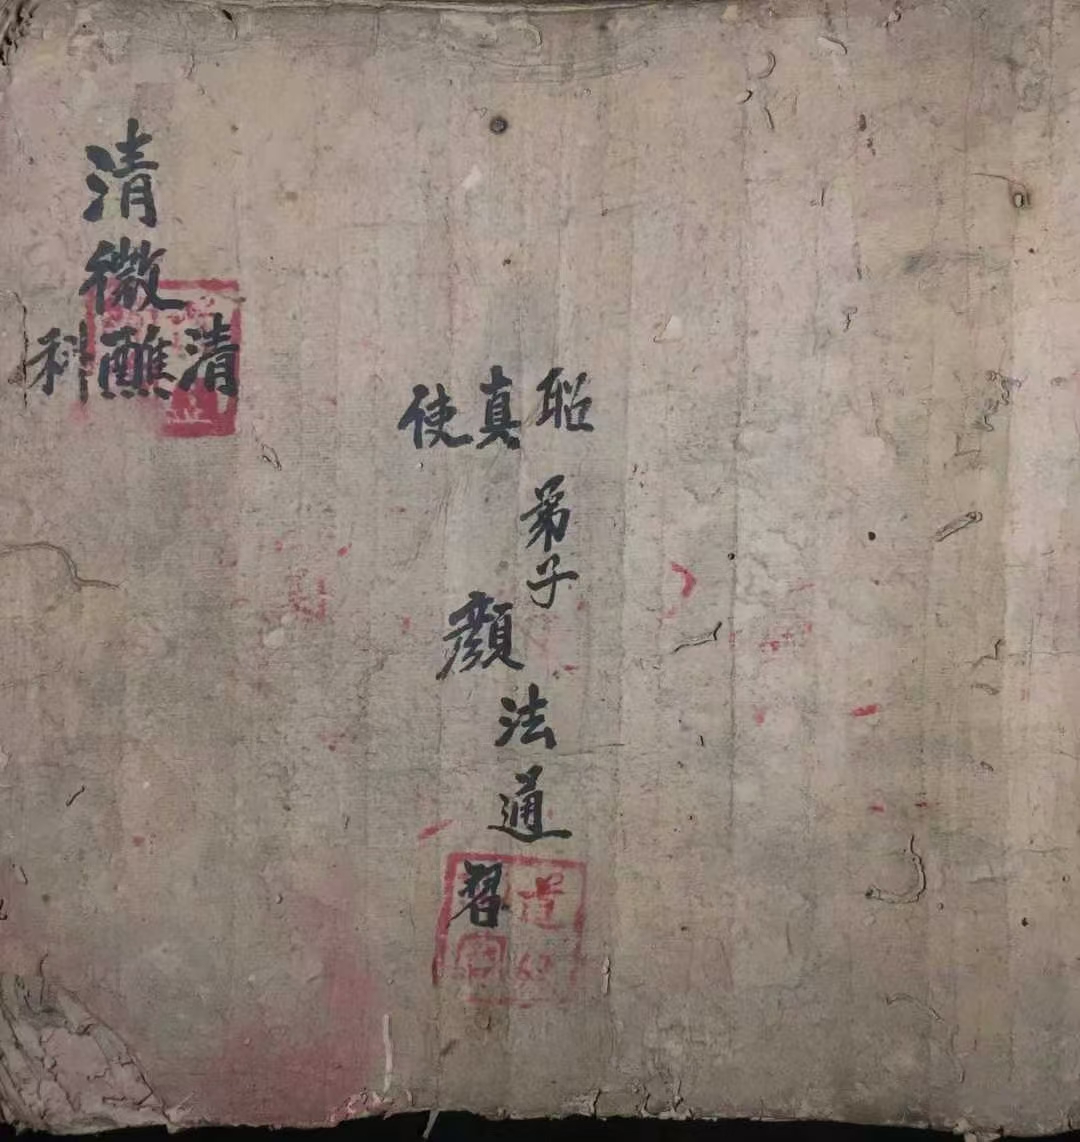 清微
清醮科
真使
弟子
顏法通習
道